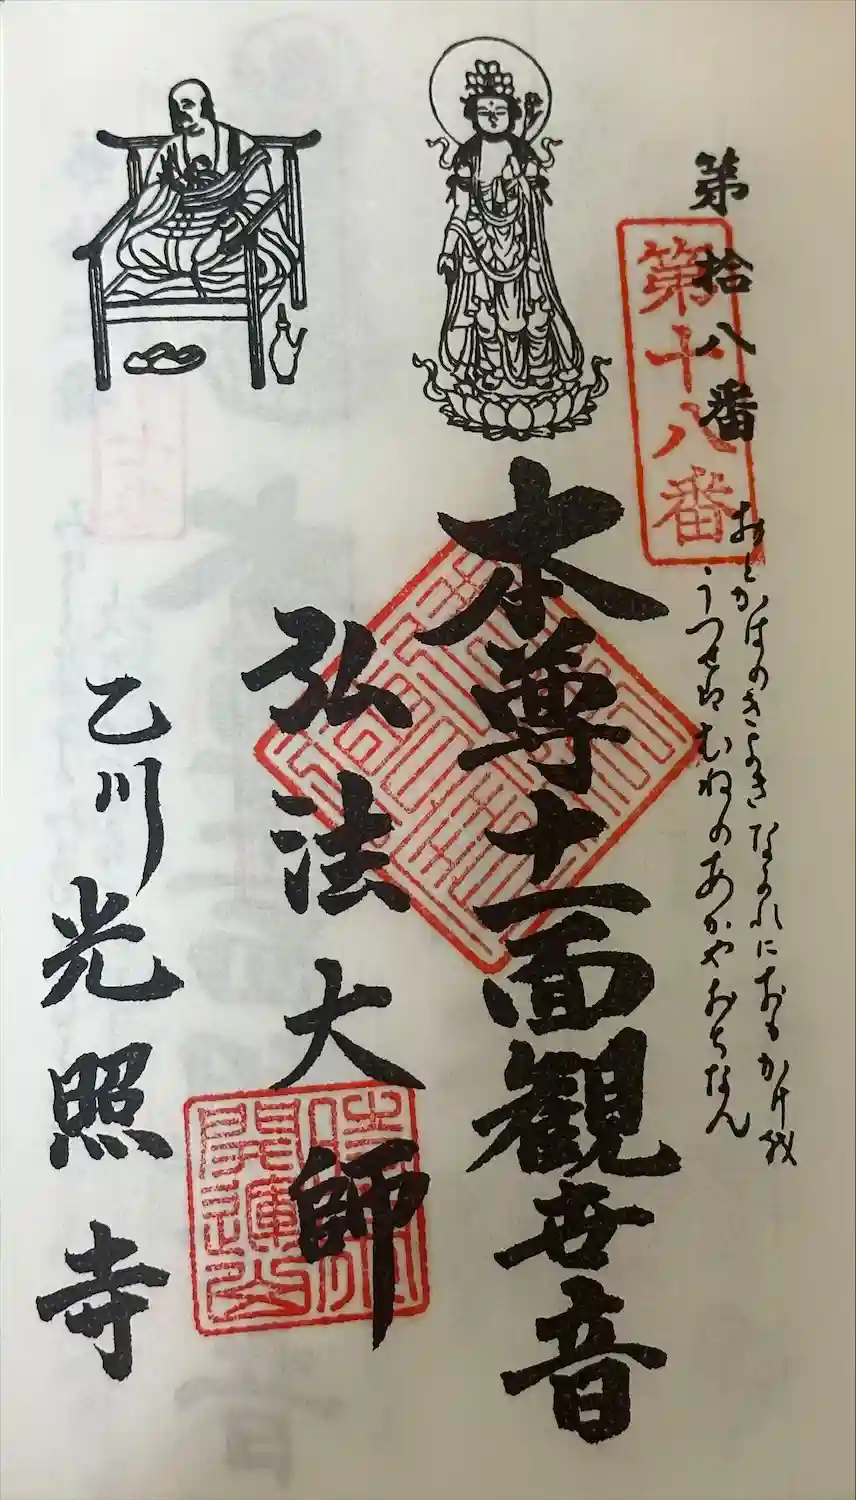 第拾八番
第十八番
おとかはのきよきながれにおもかげ
うつせばむねのあかやおちなん
本尊十一面観世音
弘法大師
開運
乙川光照寺